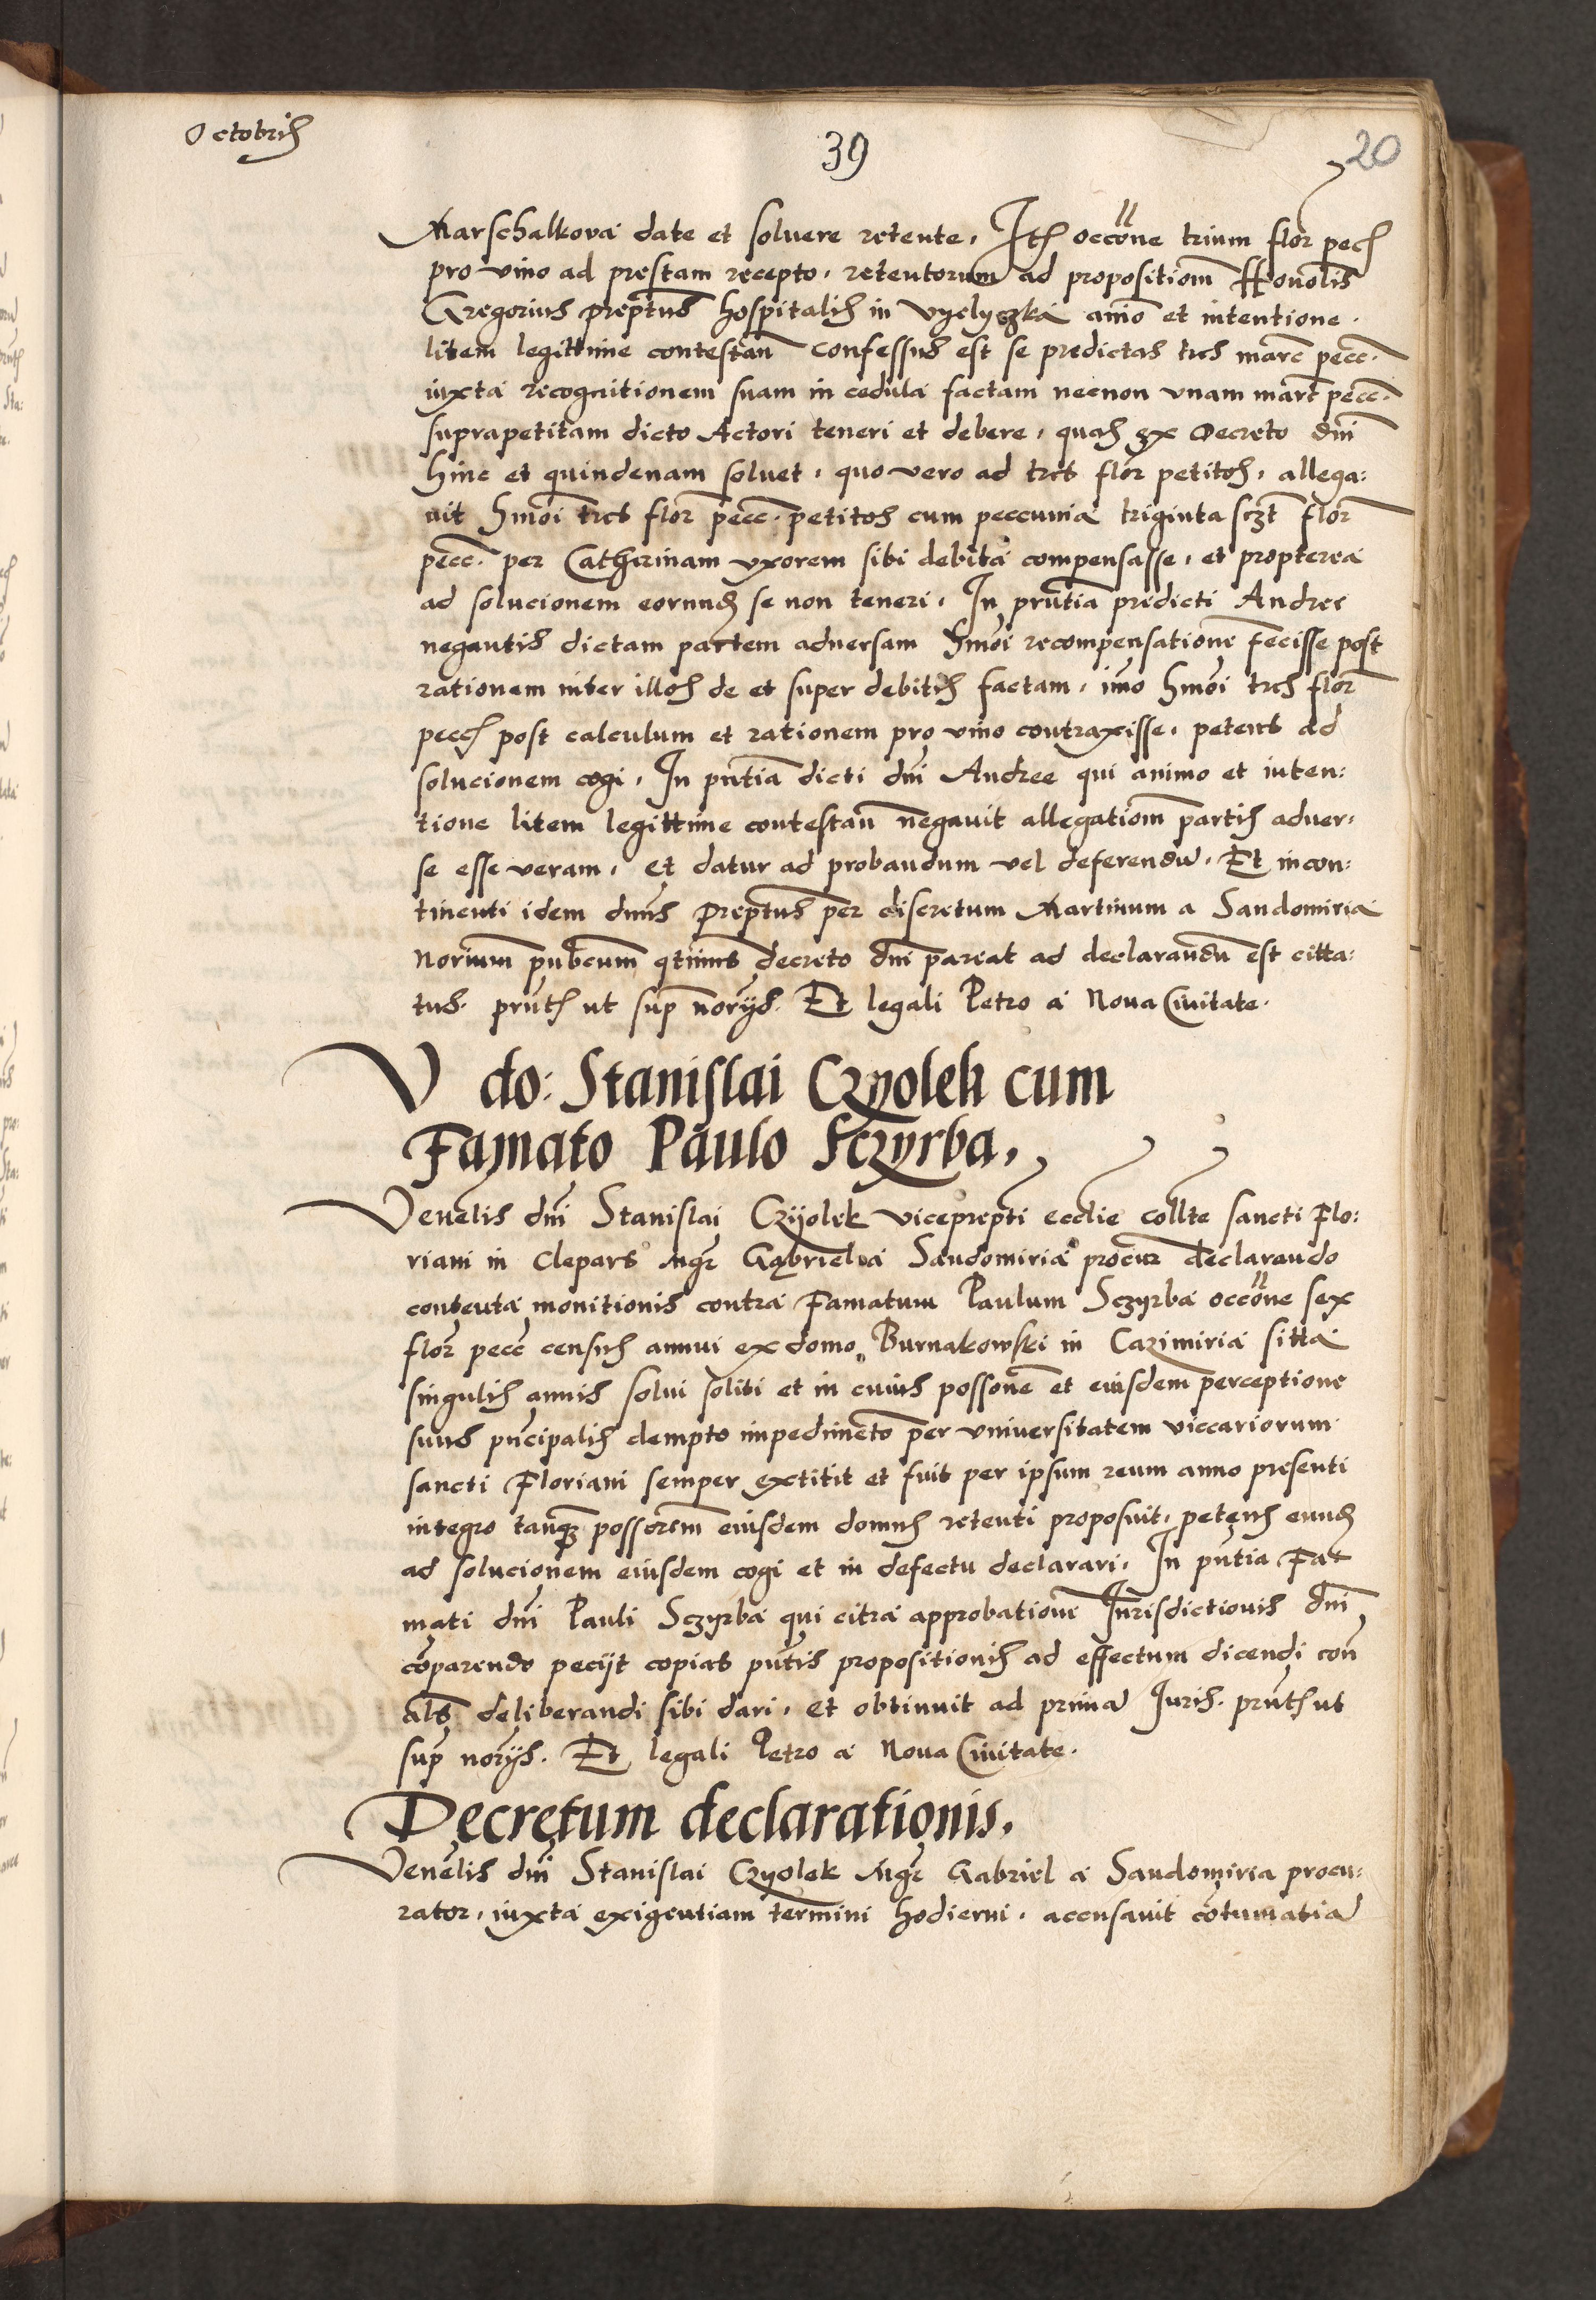 Octobris
39
20
Marschalkova date et soluere retente, Itē occōne trium flor pecc
pro vino ad prestam recepto, retentorum ad propositiōm Honolis
Gregorius preptus hospitalis in Vyelyczka aīmo et intentione
litem legittime contestan̄ confessus est se predictas tres marc pecc.
iuxta recognitionem suam in cedula factam necnon vnam marc pecc.
suprapetitam dicto Actori teneri et debere, quas ex Decreto dnī
hinc et quindenam soluet, quo vero ad tres flor petitos, allega:
uit hmōi tres flor pecc. petitos cum peccunia triginta sczt flor
pecc. per Catherinam vxorem sibi debita compensasse, et propterea
ad solucionem eorund se non teneri, In prntia predicti Andree
negantis dictam partem adversam hmōi recompensatione fecisse post
rationem inter illos de et super debitis factam, imo hmōi tres flor
pecc post calculum et rationem pro vino contraxisse, petens ad
solucionem cogi, In pntia dicti dnī Andree qui animo et inten:
tione litem legittime contestan̄ negauit allegatiōm partis aduer:
se esse veram, et datur ad probandum vel deferendū, Et incon:
tinenti idem dnus preptus per discretum Martinum a Sandomiria
norium pubcum qtinus decreto dnī pareat ad declarandū est citta:
tus. prntꝭ ut sup norijs. Et legali Petro a Noua Ciuitate.
V do: Stanislai Czyolek cum
Famato Paulo Sczyrba,
Venelis dnī Stanislai Czijolek viceprepti ecclie collte sancti Flo:
riani in Clepars Mgr Gabriel a Sandomiria procur declarando
contenta monitionis contra Famatum Paulum Sczyrba occōne sex
flor pecc census annui ex domo Burnakowski in Cazimiria sitta
singulis annis solui soliti et in cuius possone et eiusdem perceptione
suus pncipalis dempto impedimeto per vniuersitatem viccariorum
sancti Floriani semper extitit et fuit per ipsum reum anno presenti
integro tanq possorem eiusdem domus retenti proposuit, petens eund
ad solucionem eiusdem cogi et in defectu declarari, In pntia Fa:
mati dnī Pauli Sczyrba qui citra approbatione Iurisdictionis dnī
cōparendo pecijt copias pntis propositionis ad effectum dicendi con̄
als deliberandi sibi dari, et obtinuit ad primā Iuris. prntꝭ ut
sup norijs. Et legali Petro a Noua Ciuitate.
Decretum declarationis.
Venelis dnī Stanislai Czyolek Mgr Gabriel a Sandomiria procu:
rator, iuxta exigentiam termini hodierni, accusauit cōtumatiā